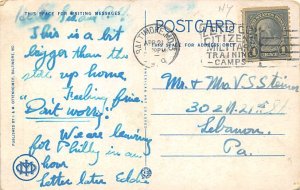 THIS SPACE FOR WRITING MESSAGES
POST CARD
THIS SPACE FOR ADDRESS ONLY
BALTIMORE, MD.
CITIZENS
MILITARY
TRAINING
CAMPS
This is a bit
bigger than the
up home
Feeling fine.
Don't worry!
We are leaving
for Philly in an
hour
Letter later Eddie
Mr & Mrs V S Steiner
302 N. 21st St
Lebanon.
Pa.